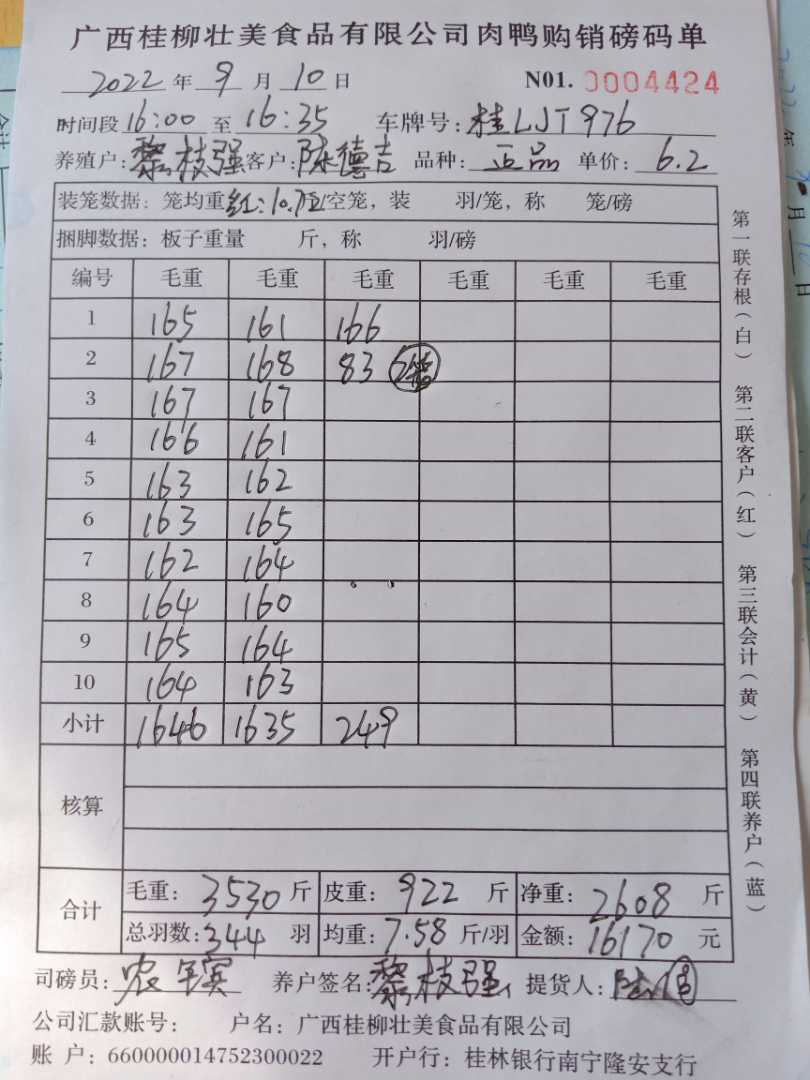 广西桂柳壮美食品有限公司肉鸭购销磅码单
2022 年 9 月 10 日 N01. 0004424
时间段 16:00 至 16:35 车牌号: 桂LJT976
养殖户: 黎枝强 客户: 陈德吉 品种: 正品 单价: 6.2
装笼数据: 笼均重 红: 10. /空笼, 装 羽/笼, 称 笼/磅
捆脚数据: 板子重量 斤, 称 羽/磅
编号 毛重 毛重 毛重 毛重 毛重 毛重
1 165 161 166
2 167 168 83
3 167 167
4 166 161
5 163 162
6 163 165
7 162 164
8 164 160
9 165 164
10 164 163
小计 1646 1635 249
核算
合计 毛重: 3530 斤 皮重: 922 斤 净重: 2608 斤
总羽数: 344 羽 均重: 7.58 斤/羽 金额: 16170 元
司磅员: 农 养户签名: 黎枝强 提货人:
公司汇款账号: 户名: 广西桂柳壮美食品有限公司
账 户: 660000014752300022 开户行: 桂林银行南宁隆安支行
第一联存根(白) 第二联客户(红) 第三联会计(黄) 第四联养户(蓝)